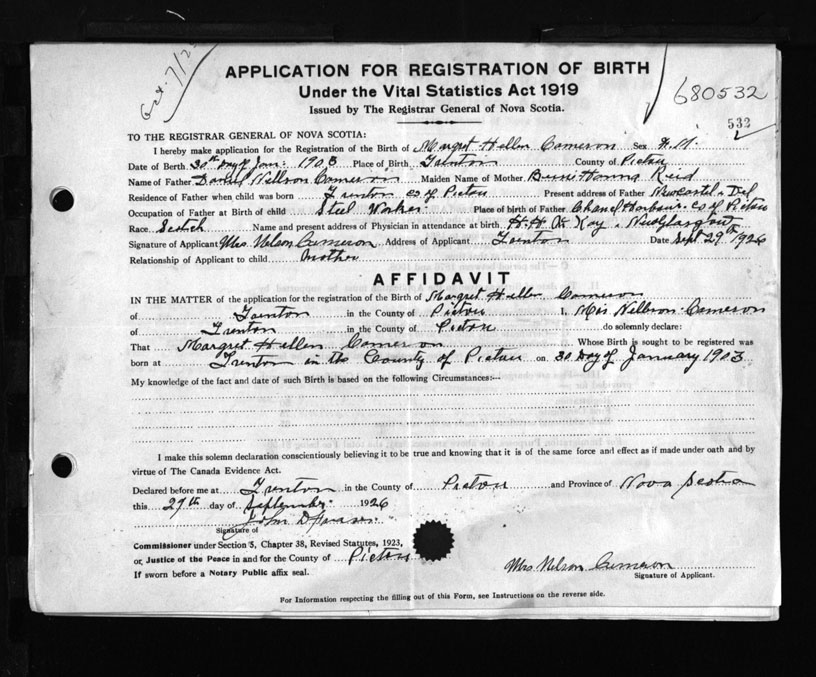 Oct. 7/2
APPLICATION FOR REGISTRATION OF BIRTH
680532
Under the Vital Statistics Act 1919
Issued by The Registrar General of Nova Scotia.
532
TO THE REGISTRAR GENERAL OF NOVA SCOTIA:
I hereby make application for the Registration of the Birth of Margret Hellen Cameron Sex
Date of Berth 30th Day of Jan: 1903 Place of Birth Trenton County of Pictou
Name of Father Daniel Nellson Cameron Maiden Name of Mother Hanna Reid
Residence of Father when child was born Trenton co of Pictou Present address of Father
Occupation of Father at Birth of child Steel Worker. Place of birth of Father Harbour. co of Pictou
Race Scotch Name and present address of Physician in attendance at birth Kay
Signature of Applicant Mrs Nelson Cameron Address of Applicant Trenton Date Sept. 29th 1926
Relationship of Applicant to child Mother
AFFIDAVIT
IN THE MATTER of the application for the registration of the Birth of Margret Hellen Cameron
of Trenton in the County of Pictou I, Mrs Nellson Cameron
of Trenton in the County of Pictou do solemnly declare:
That Margret Hellen Cameron Whose Birth is sought to be registered was
born at Trenton in the County of Pictou on 30 Day of January 1903
My knowledge of the fact and date of such Birth is based on the following Circumstances:—
I make this solemn declaration conscientiously believing it to be true and knowing that it is of the same force and effect as if made under oath and by
virtue of The Canada Evidence Act.
Declared before me at Trenton in the County of Pictou and Province of Nova Scotia
this 29th day of September 1926
John D
Signature of
Commissioner under Section 3, Chapter 38, Revised Statutes, 1923,
or, Justice of the Peace in and for the County of Pictou
If sworn before a Notary Public affix seal.
Mrs Nelson Cameron
Signature of Applicant.
For Information respecting the filling out of this Form, see Instructions on the reverse side.